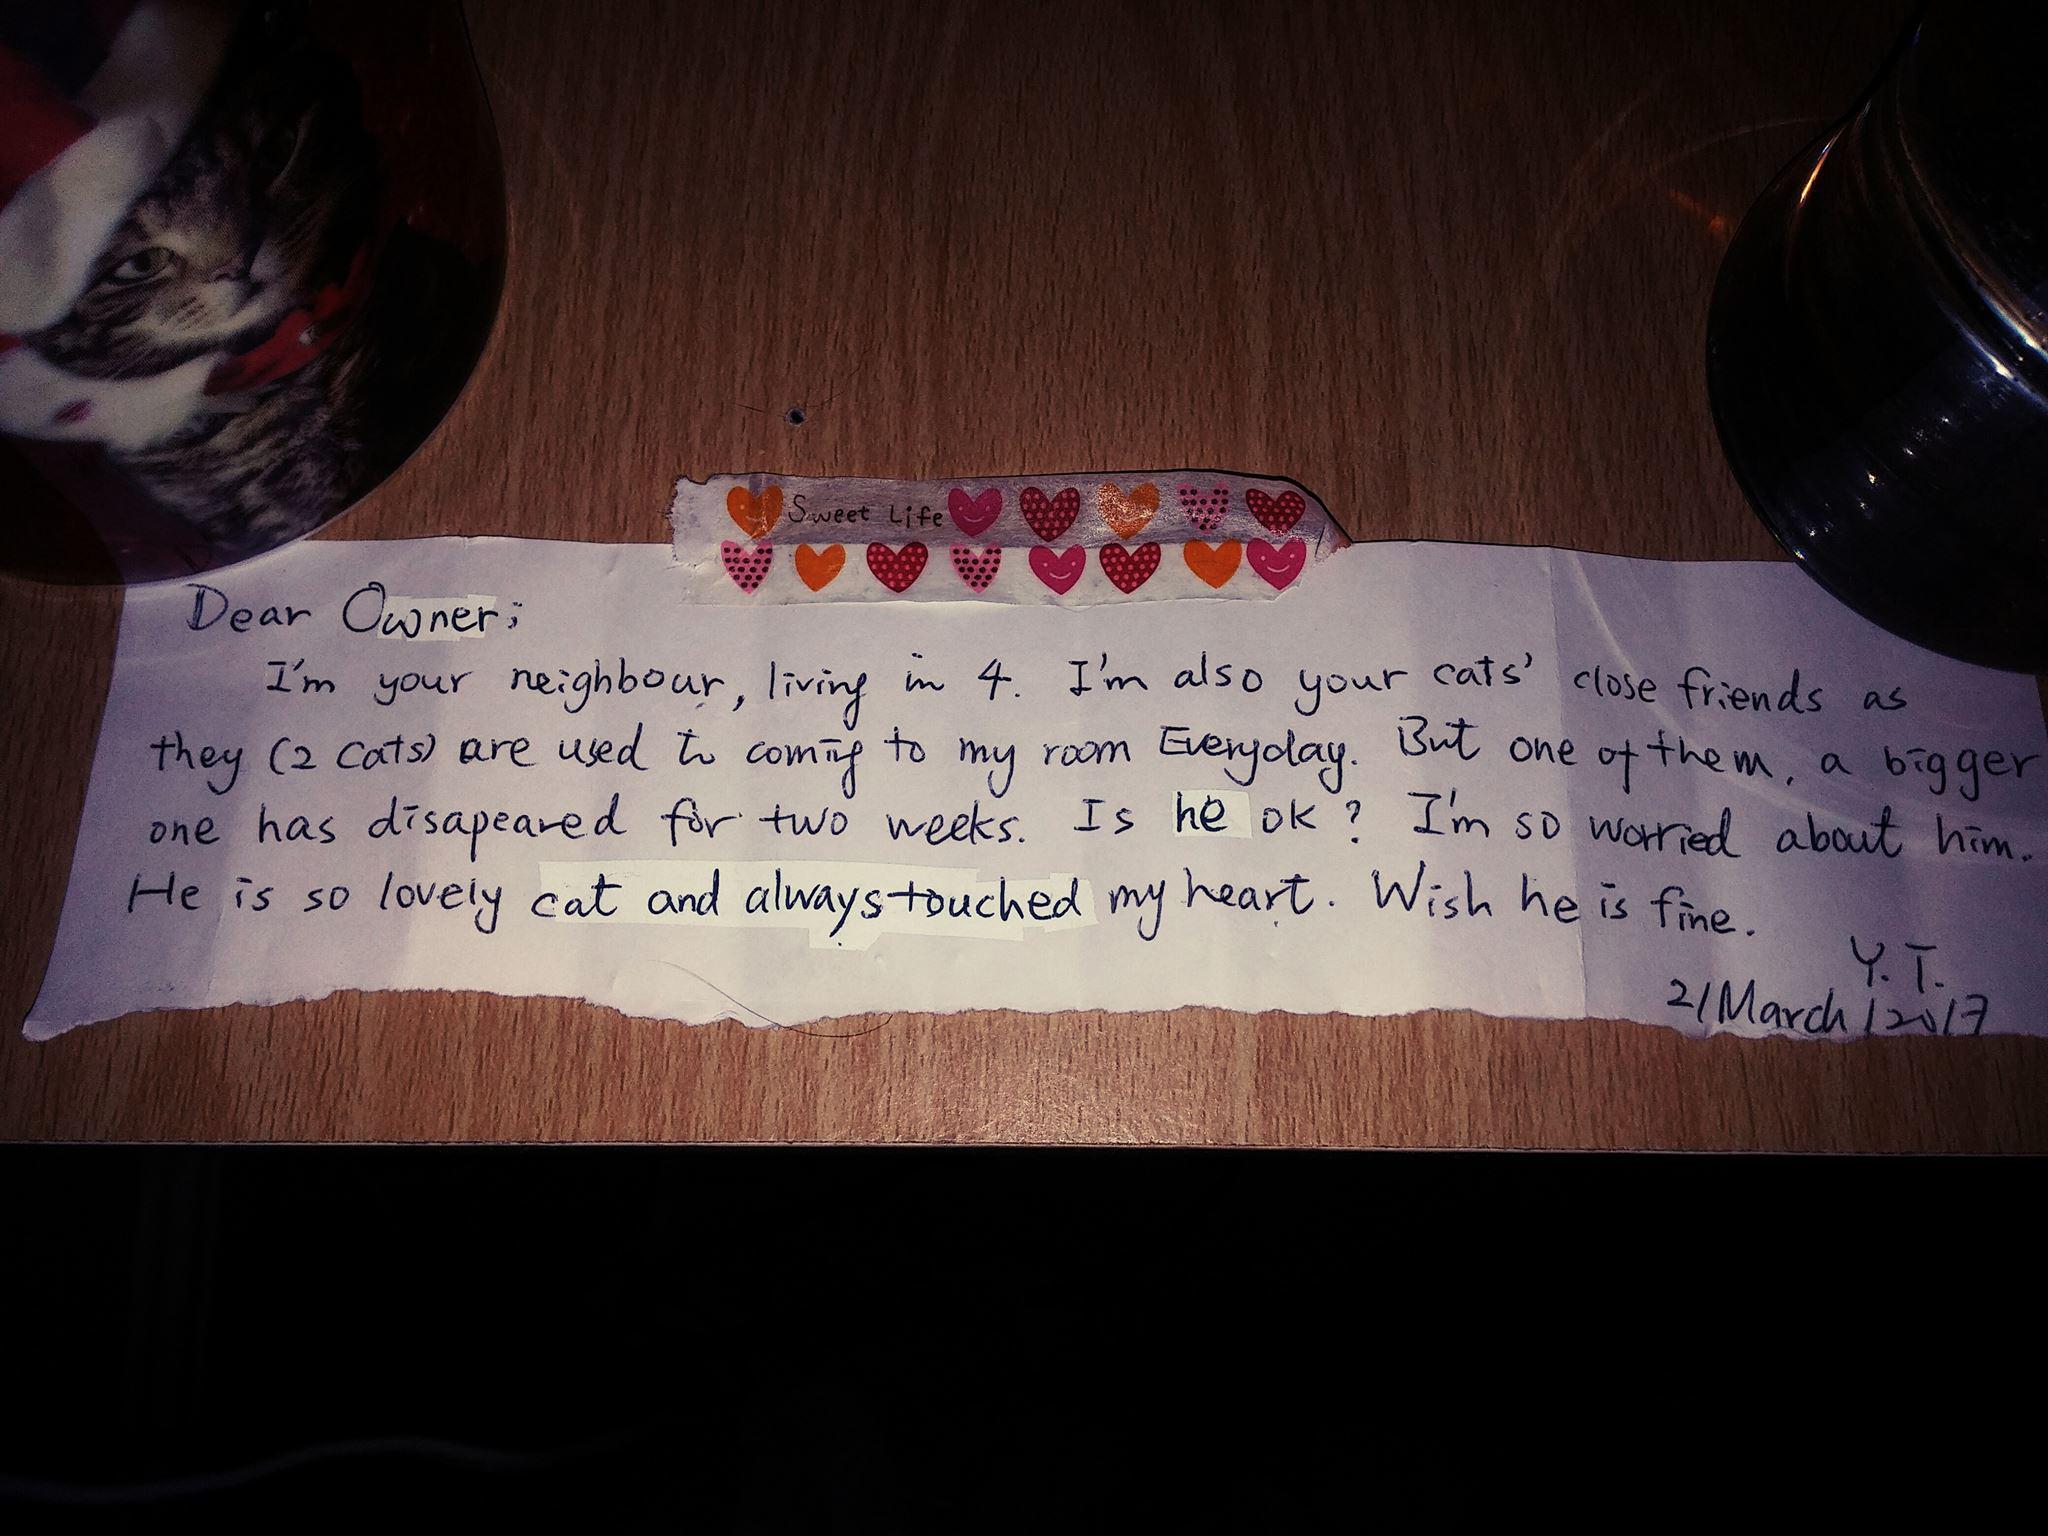 Sweet Life
Dear Owner;
I'm your neighbour, living in 4. I'm also your cats' close friends as
they (2 cats) are used to coming to my room Everyday. But one of them, a bigger
one has disapeared for two weeks. Is he ok? I'm so worried about him.
He is so lovely cat and always touched my heart. Wish he is fine.
Y. T.
21/March/2017